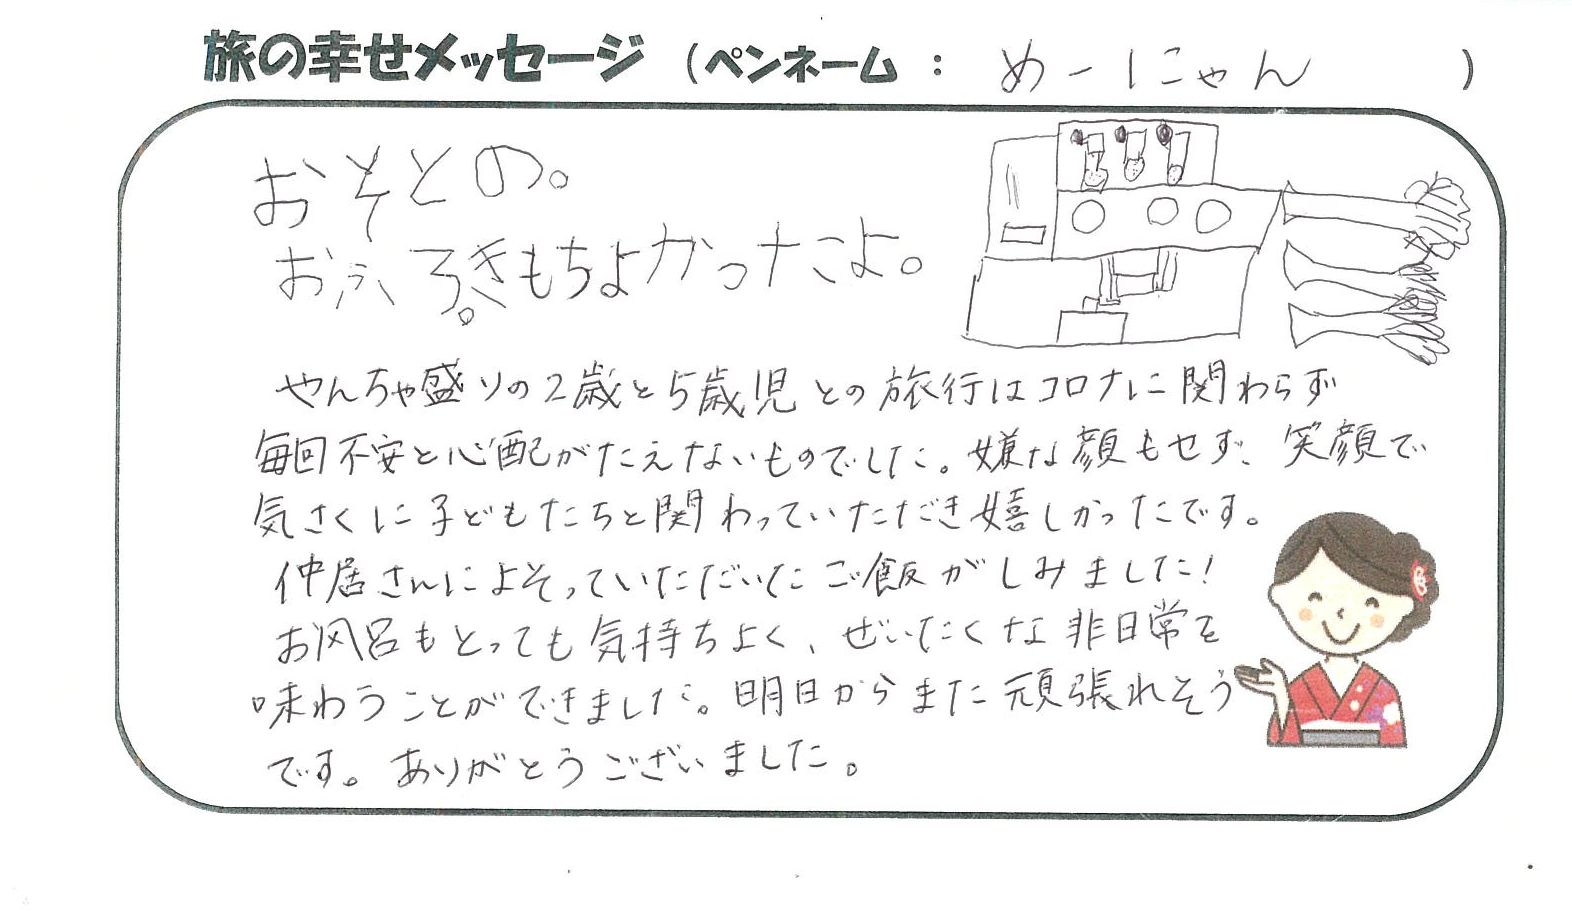 旅の幸せメッセージ (ペンネーム : めーにゃん )
おそとの。
おふろきもちよかったよ。
やんちゃ盛りの2歳と5歳児との旅行はコロナに関わらず
毎回不安と心配がたえないものでした。嫌な顔もせず、笑顔で
気さくに子どもたちと関わっていただき嬉しかったです。
仲居さんによそっていただいたご飯がしみました!
お風呂もとっても気持ちよく、ぜいたくな非日常を
味わうことができました。明日からまた頑張れそう
です。ありがとうございました。